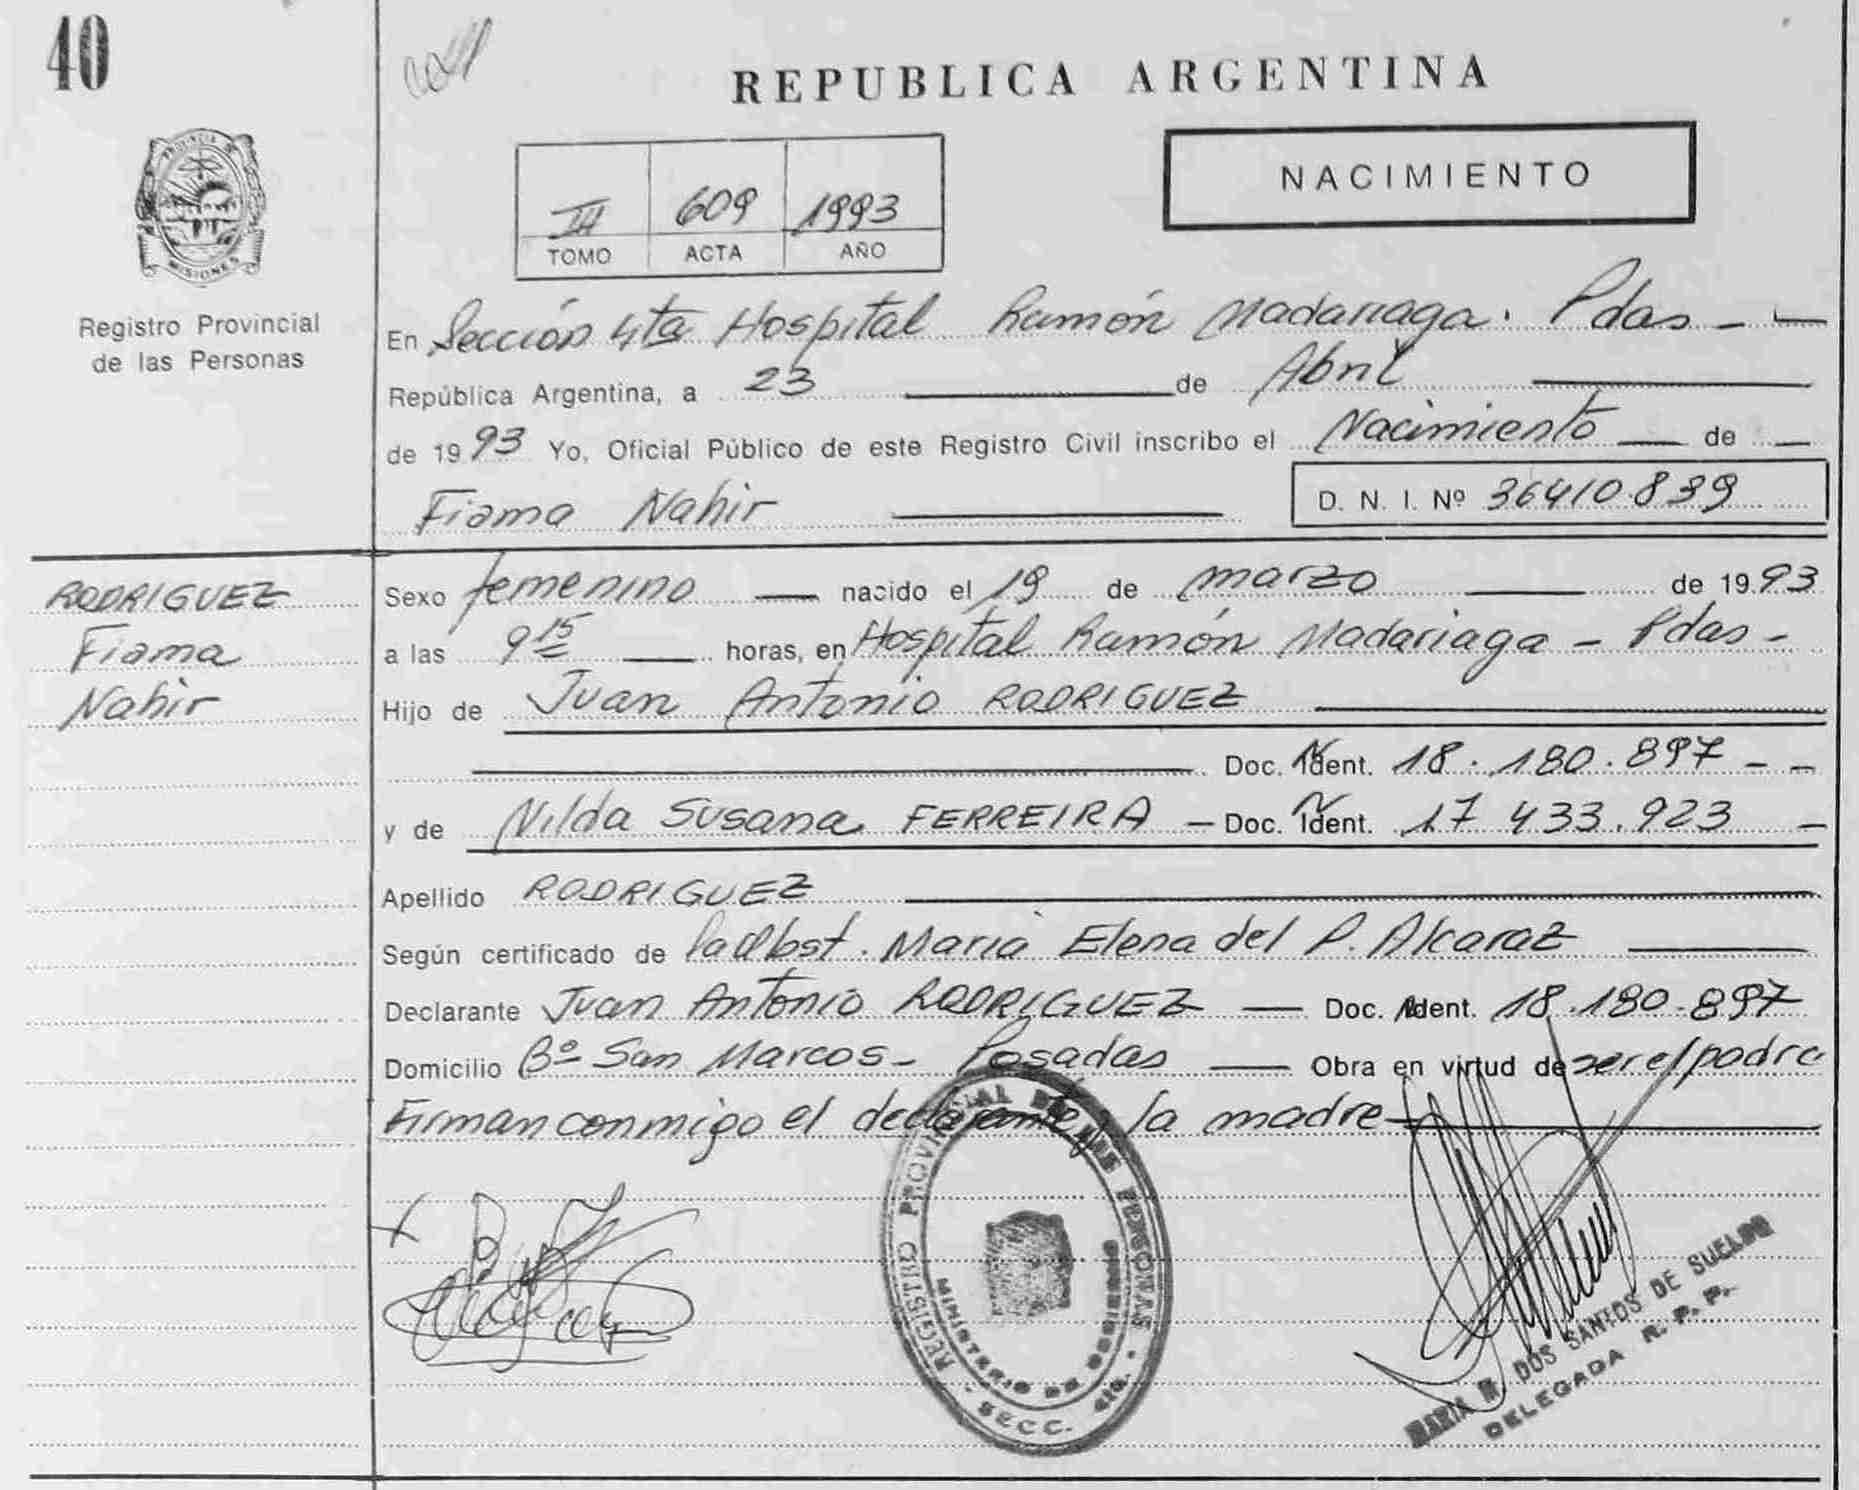 40
REPUBLICA ARGENTINA
PROVINCIA DE
MISIONES
Registro Provincial
de las Personas
NACIMIENTO
III 609 1993
TOMO ACTA AÑO
En Sección 4ta Hospital Ramón Madariaga. Pdas -
República Argentina, a 23 de Abril
de 1993 Yo, Oficial Público de este Registro Civil inscribo el Nacimiento de
Fiama Nahir
D. N. I. Nº 36410.839
RODRIGUEZ
Fiama
Nahir
Sexo femenino nacido el 19 de marzo de 1993
a las 9 15 horas, en Hospital Ramón Madariaga - Pdas -
Hijo de Juan Antonio RODRIGUEZ
Doc. Ident. 18.180.897 - -
y de Nilda Susana FERREIRA - Doc. Ident. 17 433.923 -
Apellido RODRIGUEZ
Según certificado de la Obst. Maria Elena del P. Alcaraz
Declarante Juan Antonio RODRIGUEZ - Doc. Ident. 18.180.897
Domicilio Bº San Marcos - Posadas - Obra en virtud de ser el padre
Firman conmigo el declarante y la madre
REGISTRO PROVINCIAL DE LAS PERSONAS
MINISTERIO DE GOBIERNO
SECC.
MARIA DOS SANTOS DE SUELDO
DELEGADA R. P. P.